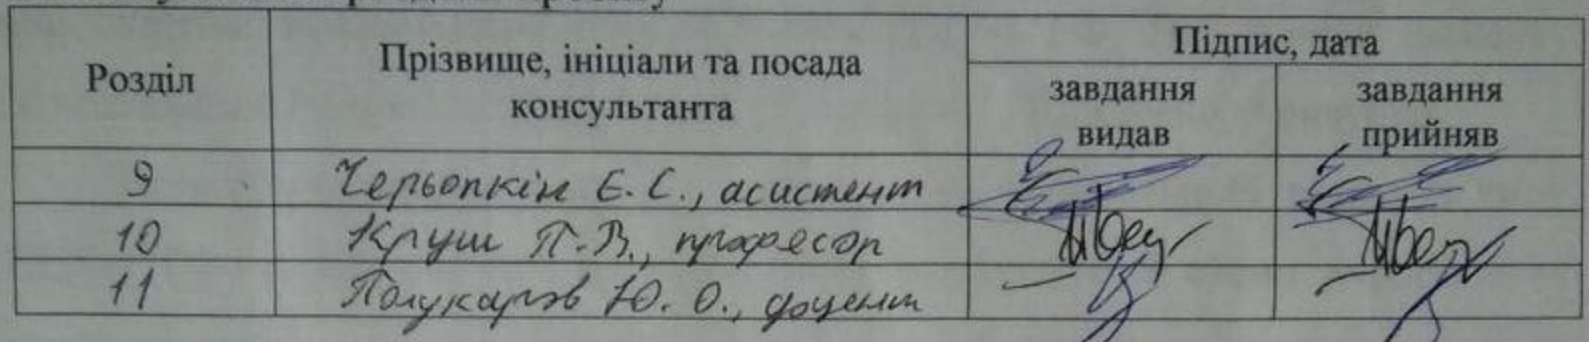 Розділ
Прізвище, ініціали та посада
консультанта
Підпис, дата
завдання
видав
завдання
прийняв
9
Черьопкін Є. С., асистент
10
Круш П. В., професор
11
Полукаров Ю. О., доцент